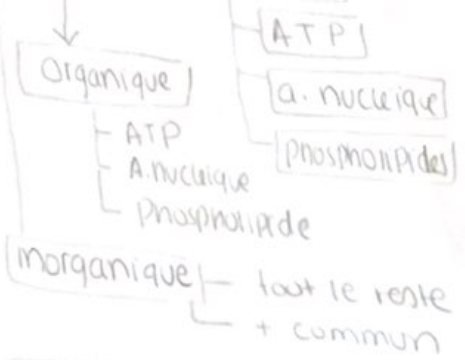 ATP
Organique
a. nucleique
ATP
phospholipides
A. nucleique
phospholipide
inorganique
tout le reste
+ commun